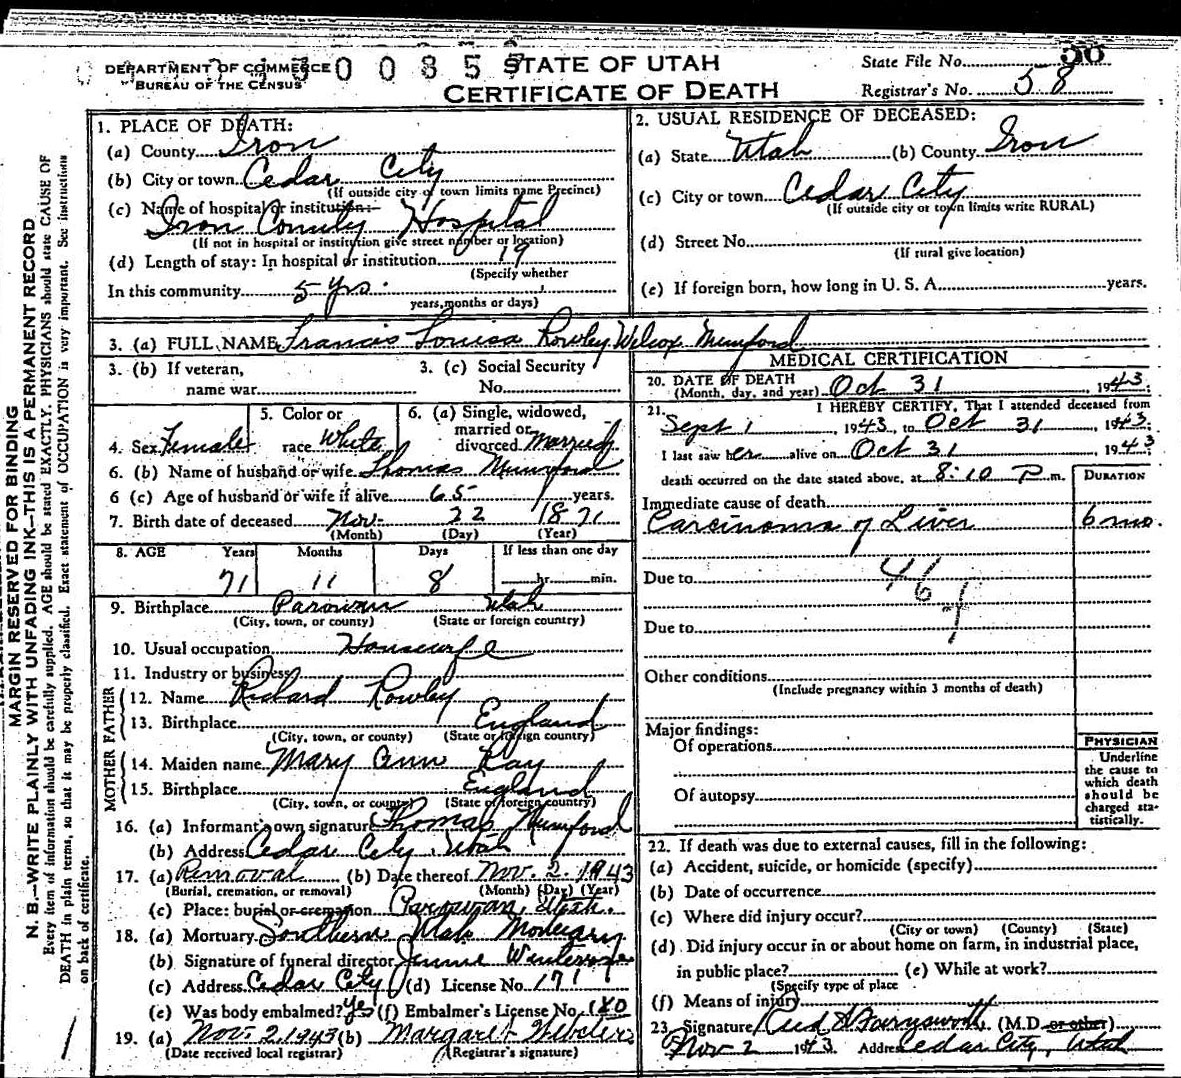 DEPARTMENT OF COMMERCE
BUREAU OF THE CENSUS
0 0 8 5
STATE OF UTAH
CERTIFICATE OF DEATH
State File No. 50
Registrar's No. 58
MARGIN RESERVED FOR BINDING
N. B.—WRITE PLAINLY WITH UNFADING INK—THIS IS A PERMANENT RECORD
Every item of information should be carefully supplied. AGE should be stated EXACTLY. PHYSICIANS should state CAUSE OF
DEATH in plain terms, so that it may be properly classified. Exact statement of OCCUPATION is very important. See instructions
on back of certificate.
1. PLACE OF DEATH:
(a) County Iron
(b) City or town Cedar City
(If outside city or town limits name Precinct)
(c) Name of hospital or institution:
Iron County Hospital
(If not in hospital or institution give street number or location)
(d) Length of stay: In hospital or institution 19
(Specify whether
In this community 5 yrs.
years, months or days)
2. USUAL RESIDENCE OF DECEASED:
(a) State Utah (b) County Iron
(c) City or town Cedar City
(If outside city or town limits write RURAL)
(d) Street No.
(If rural give location)
(e) If foreign born, how long in U. S. A. years.
3. (a) FULL NAME Francis Louisa Rowley Wilcox Mumford
3. (b) If veteran,
name war
3. (c) Social Security
No.
4. Sex Female
5. Color or
race White
6. (a) Single, widowed,
married or
divorced Married
6. (b) Name of husband or wife Thomas Mumford
6 (c) Age of husband or wife if alive 65 years.
7. Birth date of deceased Nov. 22 1871
(Month) (Day) (Year)
8. AGE Years Months Days If less than one day
71 11 8 hr. min.
9. Birthplace Parowan Utah
(City, town, or county) (State or foreign country)
10. Usual occupation Housewife
11. Industry or business
FATHER
12. Name Richard Rowley
13. Birthplace England
(City, town, or county) (State or foreign country)
MOTHER
14. Maiden name Mary Ann Kay
15. Birthplace England
(City, town, or county) (State or foreign country)
16. (a) Informant's own signature Thomas Mumford
(b) Address Cedar City, Utah
17. (a) Removal (b) Date thereof Nov. 2. 1943
(Burial, cremation, or removal) (Month) (Day) (Year)
(c) Place: burial or cremation Parowan, Utah.
18. (a) Mortuary Southern Utah Mortuary
(b) Signature of funeral director
(c) Address Cedar City (d) License No. 171
(e) Was body embalmed? yes (f) Embalmer's License No. 180
19. (a) Nov. 2 1943 (b) Margaret
(Date received local registrar) (Registrar's signature)
MEDICAL CERTIFICATION
20. DATE OF DEATH
(Month, day, and year) Oct 31, 1943.
21. I HEREBY CERTIFY, That I attended deceased from
Sept 1, 1943, to Oct 31, 1943.
I last saw her alive on Oct 31, 1943
death occurred on the date stated above, at 8:10 P. m.
DURATION
Immediate cause of death
Carcinoma of Liver 6 mo.
Due to 46 f
Due to
Other conditions
(Include pregnancy within 3 months of death)
Major findings:
Of operations
Of autopsy
PHYSICIAN
Underline
the cause to
which death
should be
charged sta-
tistically.
22. If death was due to external causes, fill in the following:
(a) Accident, suicide, or homicide (specify)
(b) Date of occurrence
(c) Where did injury occur?
(City or town) (County) (State)
(d) Did injury occur in or about home on farm, in industrial place,
in public place? (e) While at work?
(Specify type of place
(f) Means of injury
23. Signature Reed W Farnsworth (M.D. or other)
Nov 2 1943 Address Cedar City, Utah